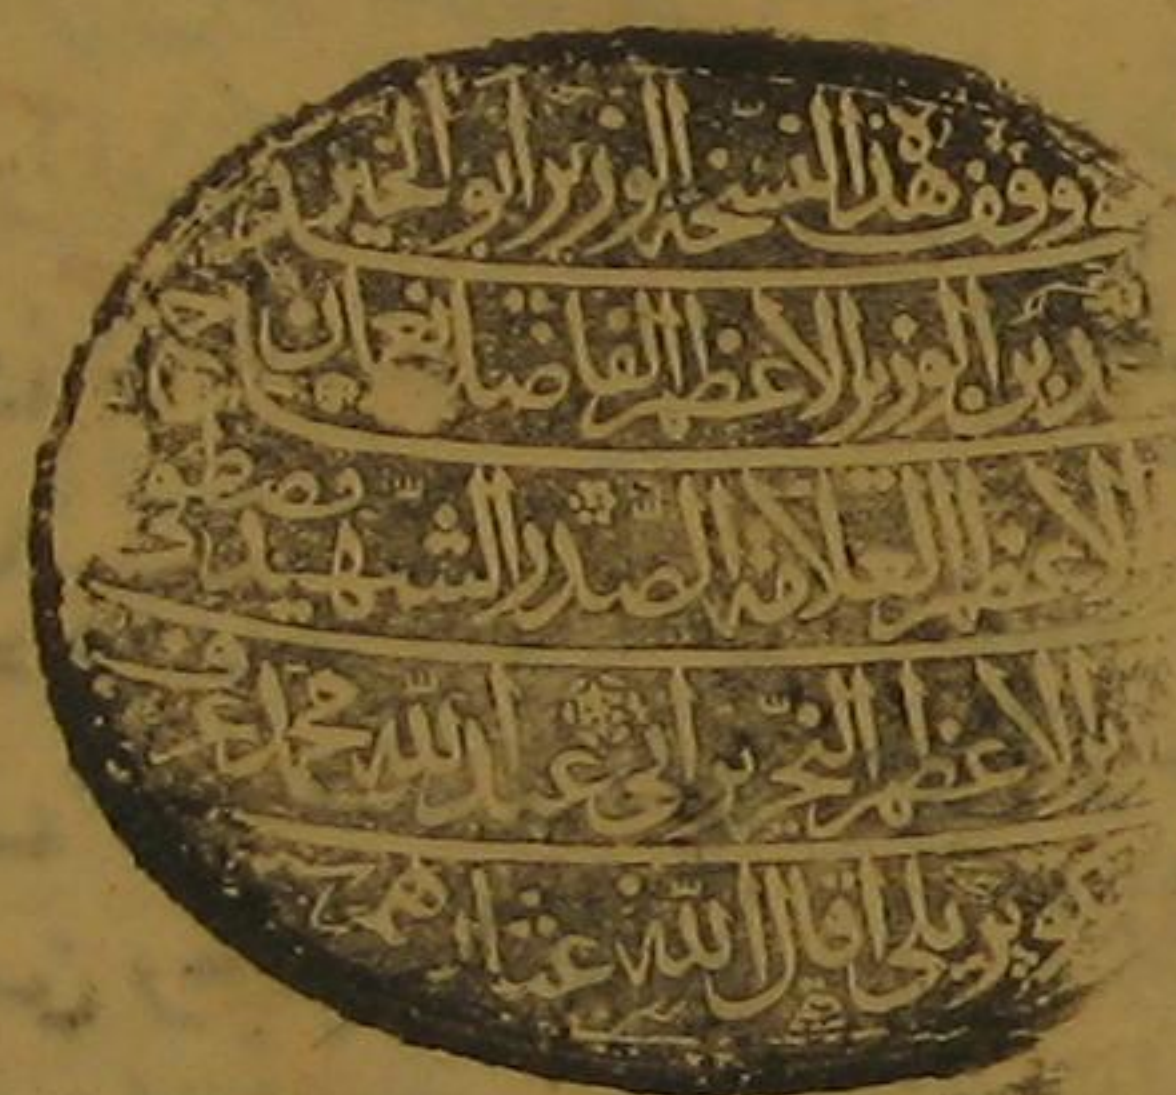 وقف هذا النسخه الوزير ابو الخير احمد
بن الوزير الاعظم الفاضل نعمان
الاعظم العلامة الصدر الشهيد مصطفى
الاعظم النحرير ابى عبد الله محمد عرف
بكوپريلى اقال الله عثارهم